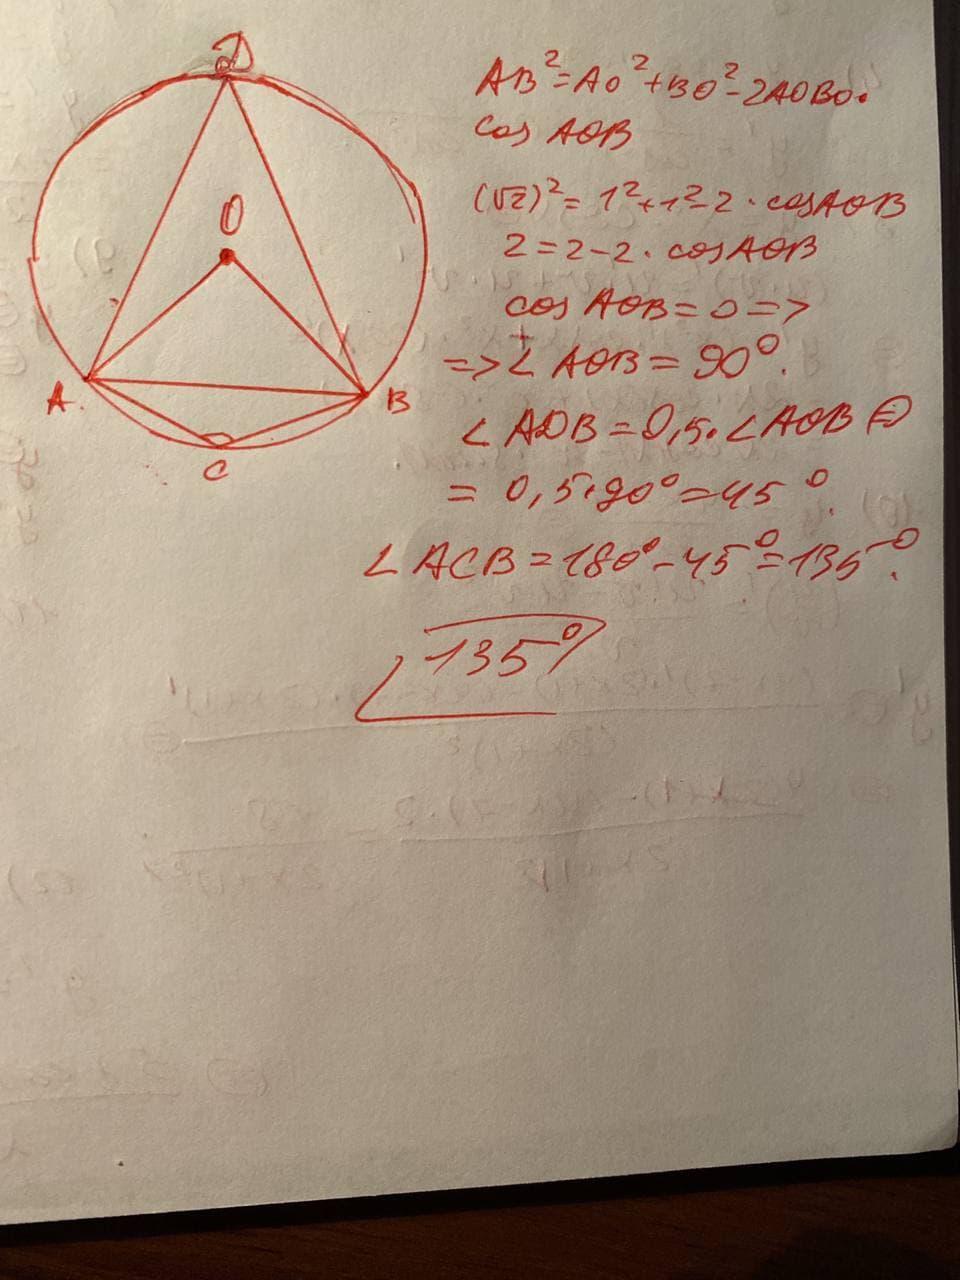 D
O
A.
B
C
AB²=AO²+BO²-2AOBO·
cos AOB
(√2)²=1²+1²-2·cosAOB
2=2-2·cosAOB
cos AOB=0=>
=>∠AOB=90°.
∠ADB=0,5·∠AOB⊜
=0,5·90°=45°.
∠ACB=180°-45°=135°.
135°